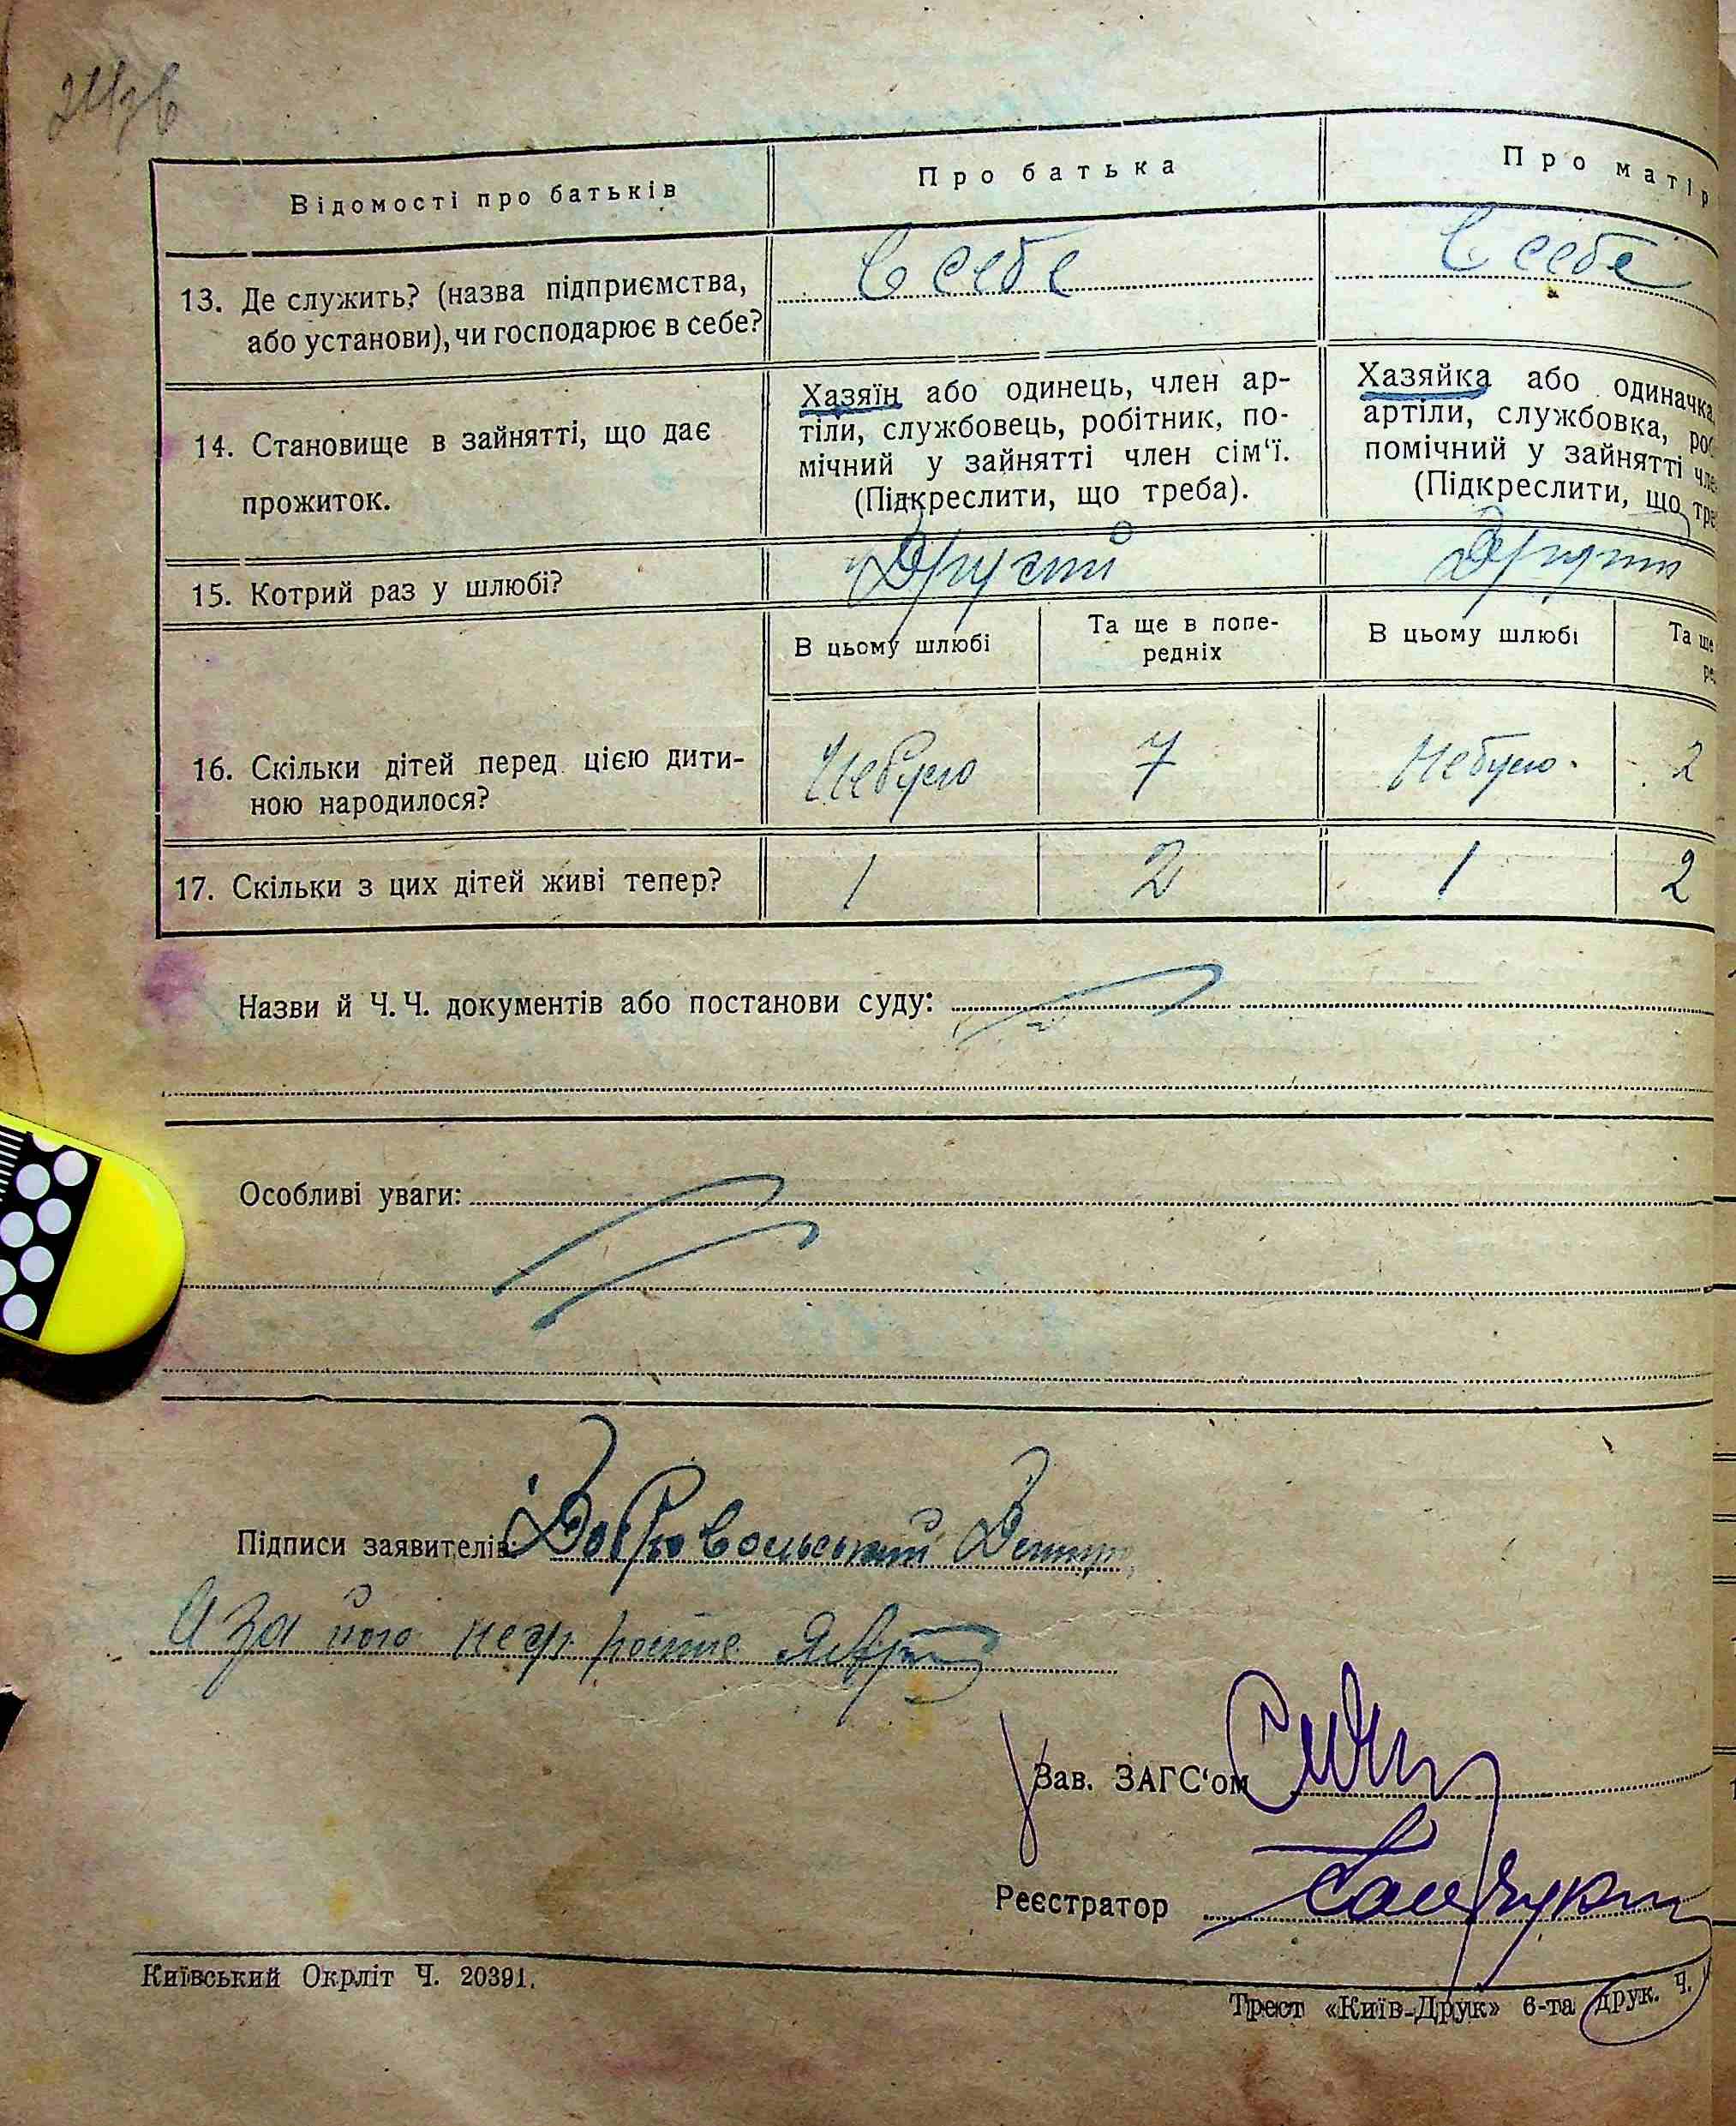 24зв
Відомості про батьків
Про батька
Про матір
13. Де служить? (назва підприємства,
або установи), чи господарює в себе?
в себе
в себе
14. Становище в зайнятті, що дає
прожиток.
Хазяїн або одинець, член ар-
тіли, службовець, робітник, по-
мічний у зайнятті член сім‘ї.
(Підкреслити, що треба).
Хазяйка або одиначка,
артіли, службовка, роб
помічний у зайнятті чле
(Підкреслити, що тре
15. Котрий раз у шлюбі?
Другий
Другий
В цьому шлюбі
Та ще в попе-
редніх
В цьому шлюбі
Та ще
ре
16. Скільки дітей перед цією дити-
ною народилося?
Небуло
7
Небуло
2
17. Скільки з цих дітей живі тепер?
1
2
1
2
Назви й Ч. Ч. документів або постанови суду:
Особливі уваги:
Підписи заявителів:
Добровольський Дмитро
А за його негр роспис
Зав. ЗАГС‘ом
Реєстратор
Київський Окрліт Ч. 20391.
Трест «Київ-Друк» 6-та друк. Ч.